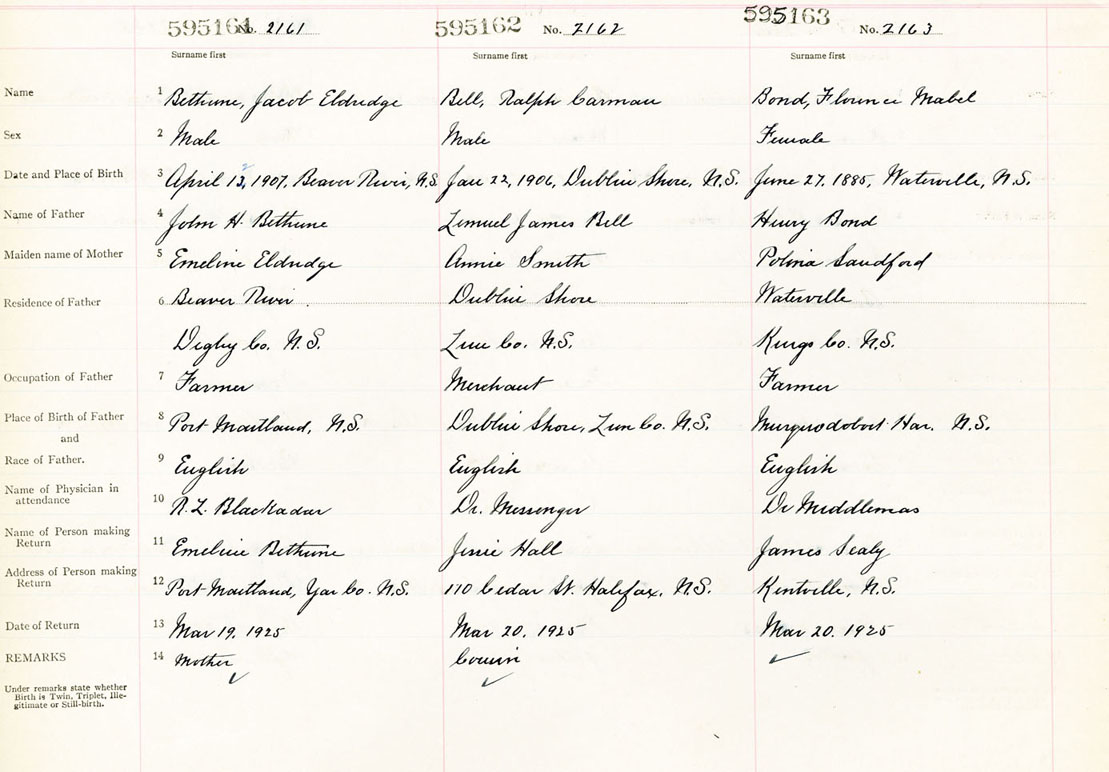 595161 No. 2161 595162 No. 2162 595163 No. 2163
Surname first Surname first Surname first
Name 1 Bethune, Jacob Eldridge Bell, Ralph Carman Bond, Florence Mabel
Sex 2 Male Male Female
Date and Place of Birth 3 April 1907, Beaver River, N.S. Jan 22, 1906, Dublin Shore, N.S. June 27, 1885, Waterville, N.S.
Name of Father 4 John H. Bethune Lemuel James Bell Henry Bond
Maiden name of Mother 5 Emeline Eldridge Annie Smith Polina Sandford
Residence of Father 6 Beaver River Dublin Shore Waterville
Digby Co. N.S. Lun Co. N.S. Kings Co. N.S.
Occupation of Father 7 Farmer Merchant Farmer
Place of Birth of Father 8 Port Maitland, N.S. Dublin Shore, Lun Co. N.S. Har. N.S.
and
Race of Father. 9 English English English
Name of Physician in
attendance 10 R.L. Blackadar Dr. Messenger Dr Middlemas
Name of Person making
Return 11 Emeline Bethune Jinie Hall James Sealy
Address of Person making
Return 12 Port Maitland, Yar Co. N.S. 110 Cedar St. Halifax, N.S. Kentville, N.S.
Date of Return 13 Mar 19, 1925 Mar 20. 1925 Mar 20. 1925
REMARKS 14 Mother Cousin
Under remarks state whether
Birth is Twin, Triplet, Ille-
gitimate or Still-birth.